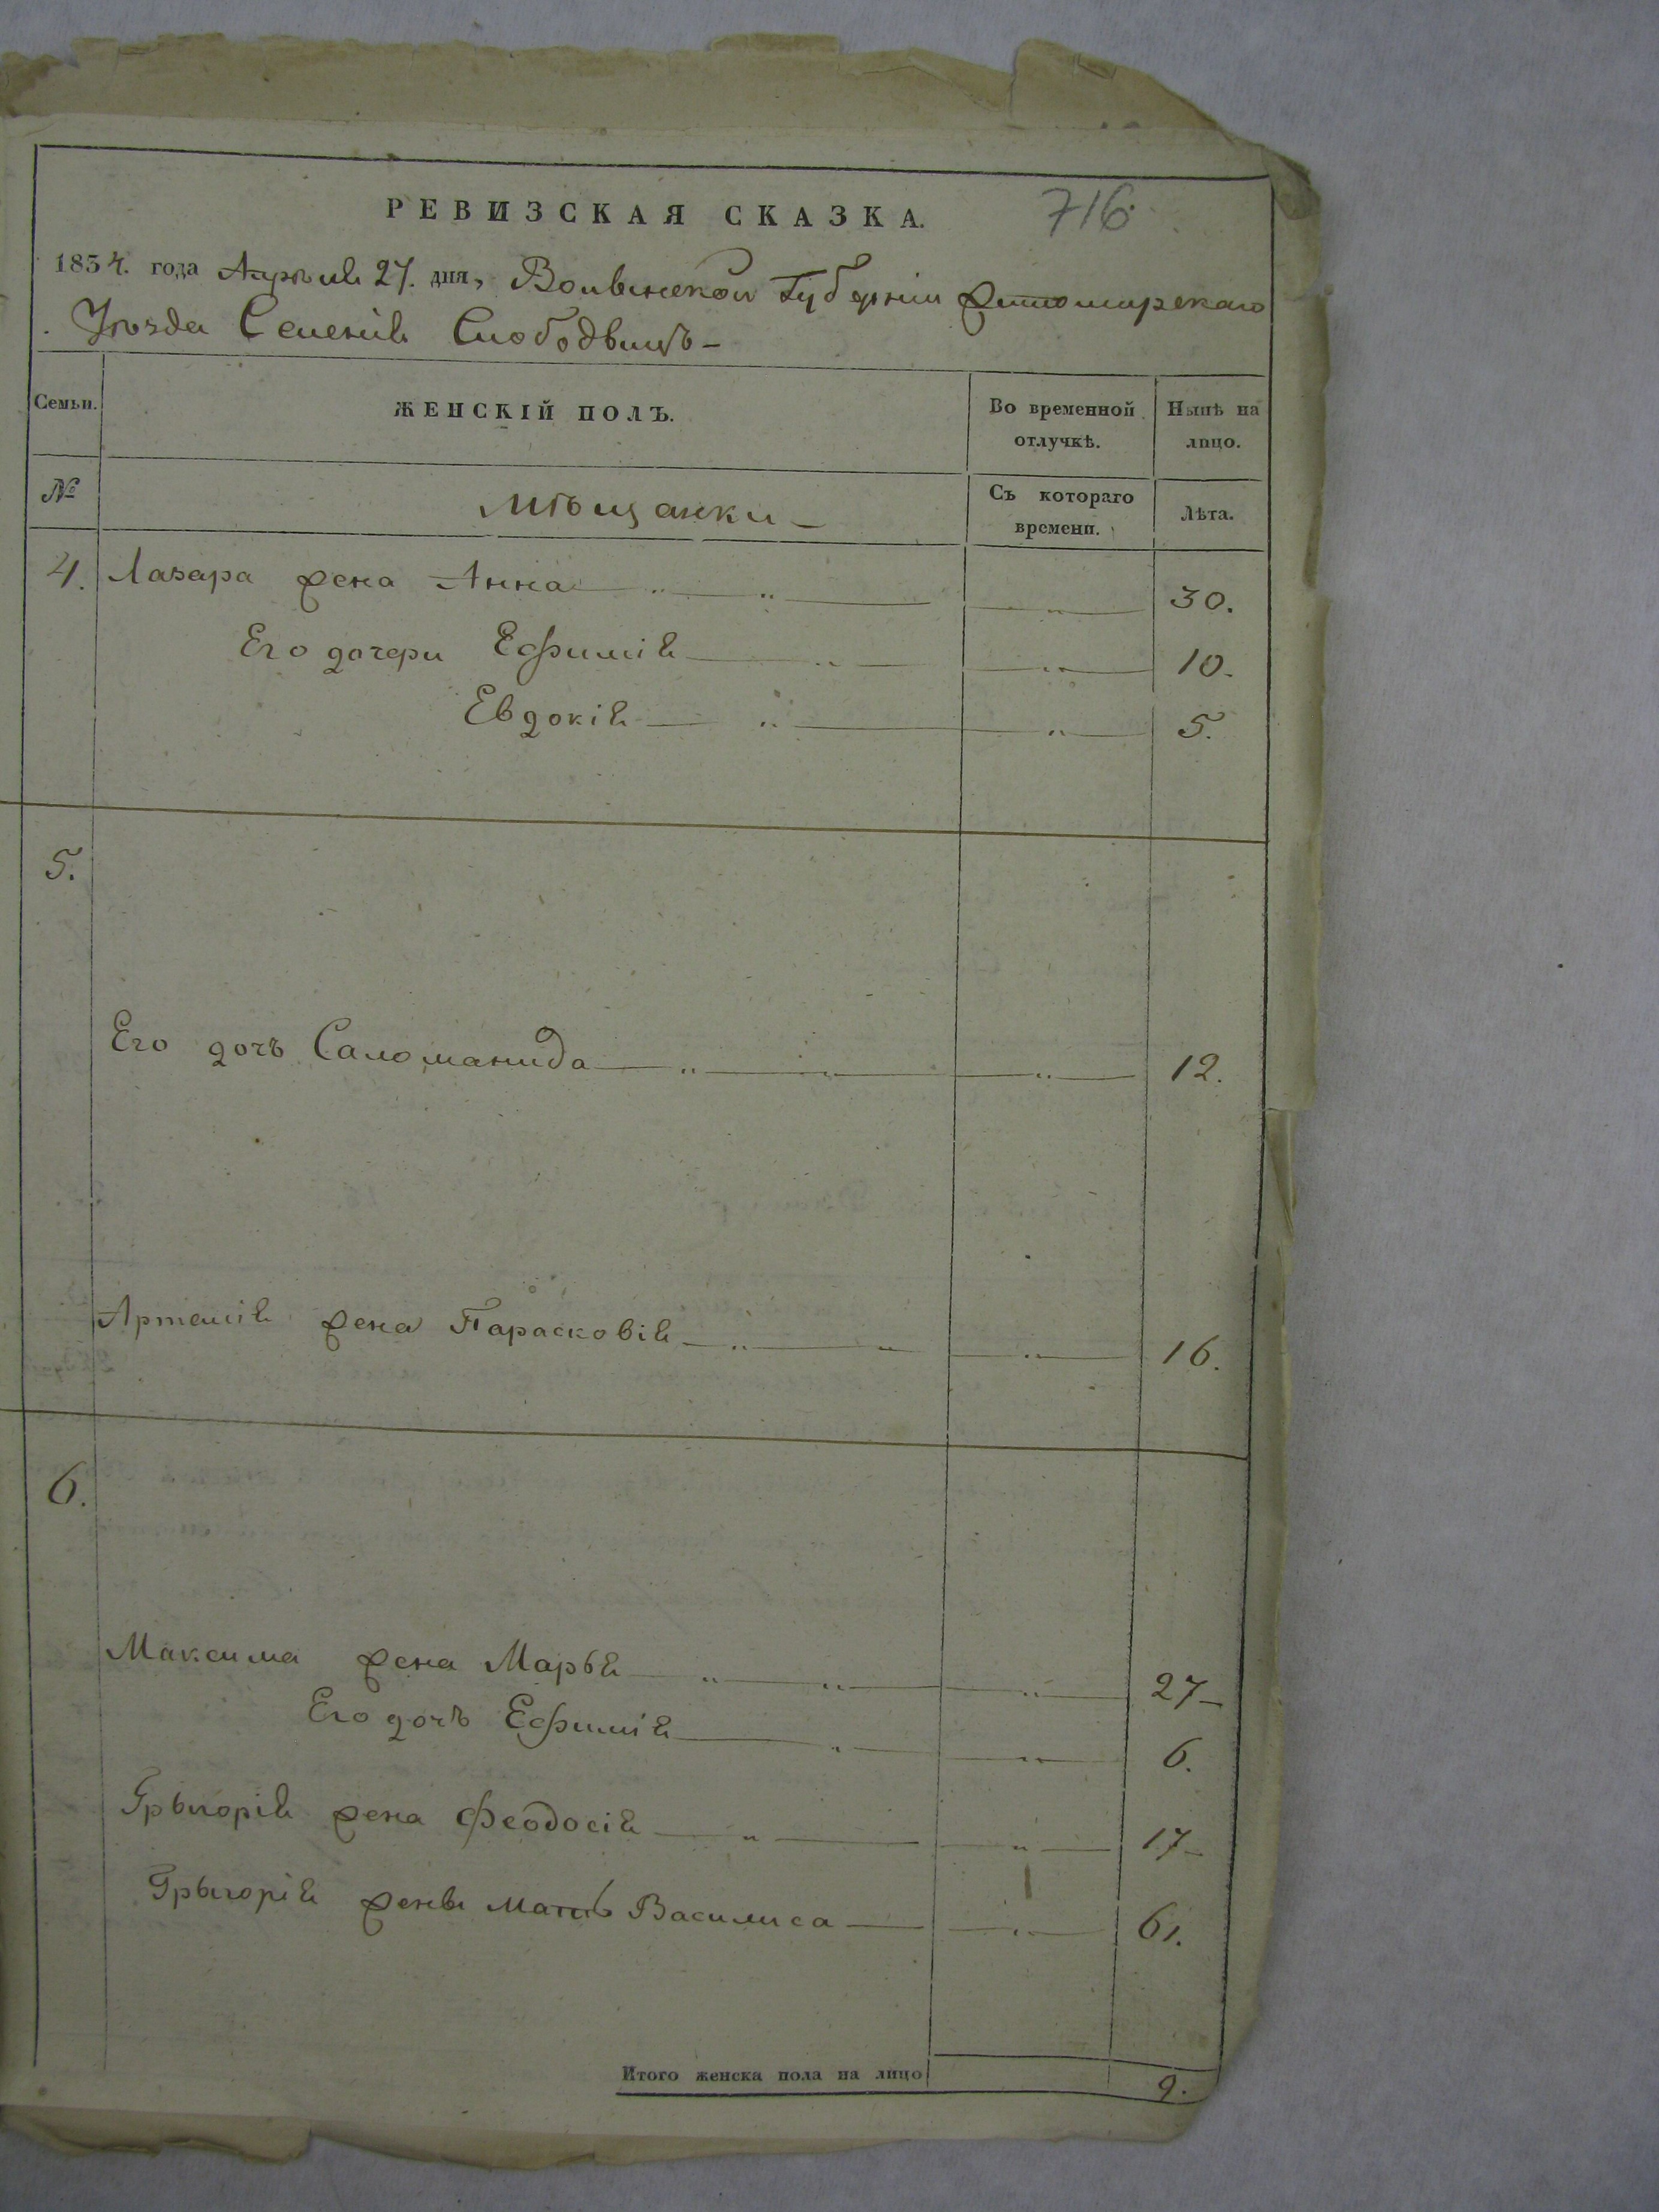 РЕВИЗСКАЯ СКАЗКА. 716.
1854. года Апрѣля 27. дня, Волынской Губерніи Житомирскаго
Уѣзда Селенія Слободыщъ —
Семьи. ЖЕНСКІЙ ПОЛЪ. Во временной отлучкѣ. Нынѣ на лицо.
№ Мѣщанки — Съ котораго времени. Лѣта.
4. Лазара жена Анна — „ — „ — — „ — 30.
Его дочери Ефимія — „ — — „ — 10.
Евдокія — „ — — „ — 5.
5.
Его дочь Саломанида — „ — „ — — „ — 12.
Артемія жена Парасковія — „ — „ — — „ — 16.
6.
Максима жена Марья — „ — „ — — „ — 27 —
Его дочь Ефимія — „ — — „ — 6.
Грыгорія жена Феодосія — „ — — „ — 17 —
Грыгорія жены мать Василиса — — „ — 61.
Итого женска пола на лицо 9.